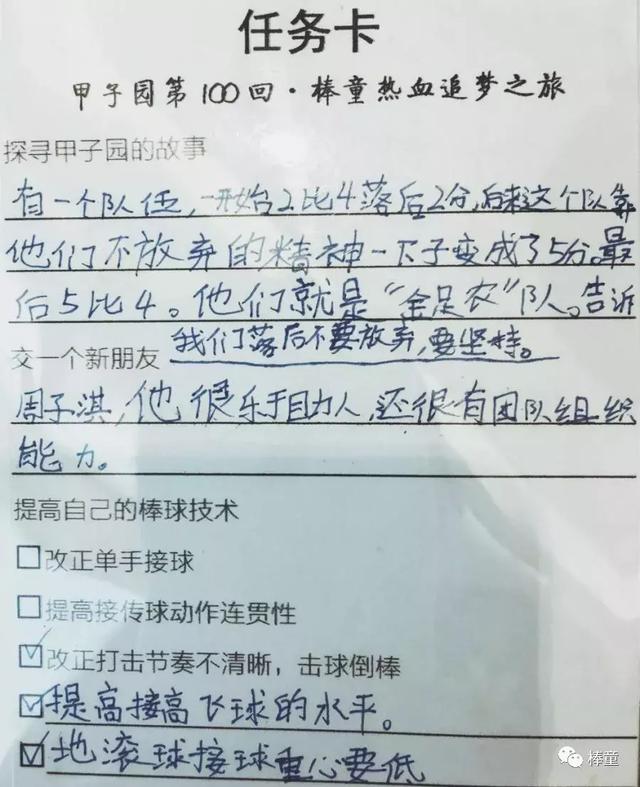 任务卡
甲子园第100回·棒童热血追梦之旅
探寻甲子园的故事
有一个队伍,一开始2比4落后2分,后来这个队靠
他们不放弃的精神一下子变成了5分。最
后5比4。他们就是“金足农”队。告诉
我们落后不要放弃,要坚持。
交一个新朋友
周子淇,他很乐于助人,还很有团队组织
能力。
提高自己的棒球技术
改正单手接球
提高接传球动作连贯性
改正打击节奏不清晰，击球倒棒
提高接高飞球的水平。
地滚球接球重心要低
棒童